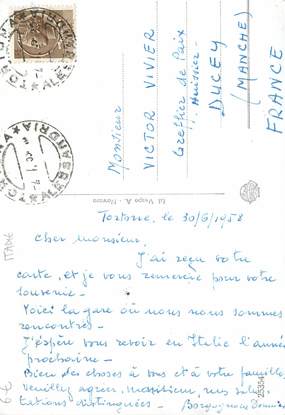 Monsieur
VICTOR VIVIER
Greffier de Paix
Huissier.
DUCEY
(MANCHE)
FRANCE
Ed. Vespo A. - Novara
Tortone, le 30/6/1958
Cher monsieur,
J'ai reçu votre
carte, et je vous remercie pour votre
souvenir -
Voici la gare où nous nous sommes
rencontrés -
J'espère vous revoir en Italie l'année
prochaine -
Bien des choses à vous et à votre famille,
veuillez agréer, monsieur, mes salu-
tations distinguées -
ITALIE
6€
25354